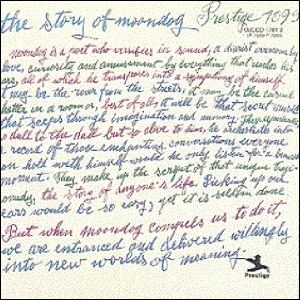 the story of moondog Prestige 7099
moondog is a poet who versifies in sound, a diarist overcome by
love, curiosity and amusement by everything that reaches his
ears all of which he transposes into a symphony of himself.
it may be the roar from the streets, it may be the casual
better in a woman, best of all, it will be that secret music
that seeps through imagination and memory.
dull to the but so alive to him, he orchestrates into
a record of those enchanting conversations everyone
can hold with himself would he only listen for a
moment. They make up the script of that unique tragi-
comedy, the story of anyone's life. Pricking up our
ears would be so easy, yet it is seldom done
But when moondog compels us to do it,
we are entranced and delivered willingly
into new worlds of meaning.
Prestige